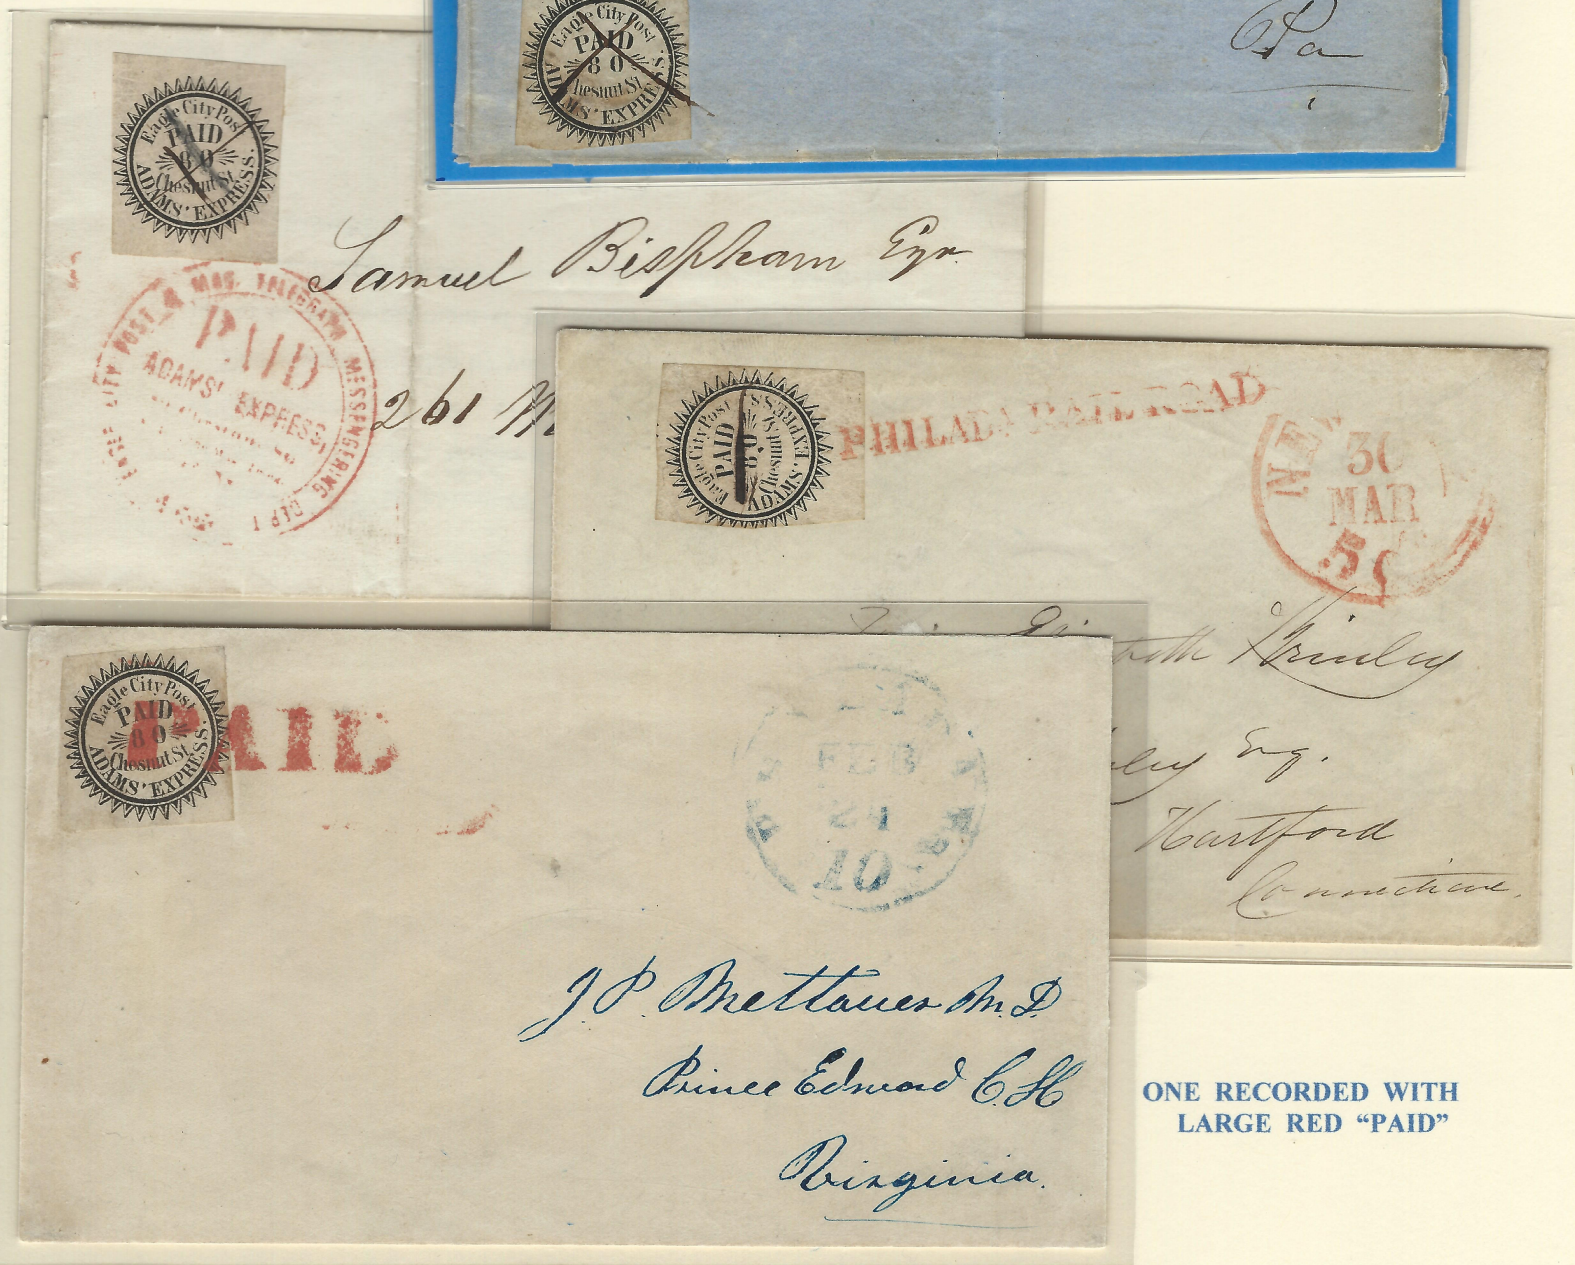 Eagle City Post
PAID
80
Chesnut St.
ADAMS' EXPRESS.
Pa
Eagle City Post
PAID
80
Chesnut St.
ADAMS' EXPRESS.
Samuel Bispham Esqr.
261
EAGLE CITY POST & MAG. TELEGRAPH MESSENGERING DEPT
PAID
ADAMS' EXPRESS,
Eagle City Post
PAID
80
Chesnut St.
ADAMS' EXPRESS.
PHILADA RAIL ROAD
NEW
30
MAR
5
Brinley
ley Esq.
Hartford
Connecticut.
Eagle City Post
PAID
80
Chesnut St.
ADAMS' EXPRESS.
PAID
FEB
24
10
J. P. Mettauer M. D.
Prince Edward C. H
Virginia.
ONE RECORDED WITH
LARGE RED “PAID”